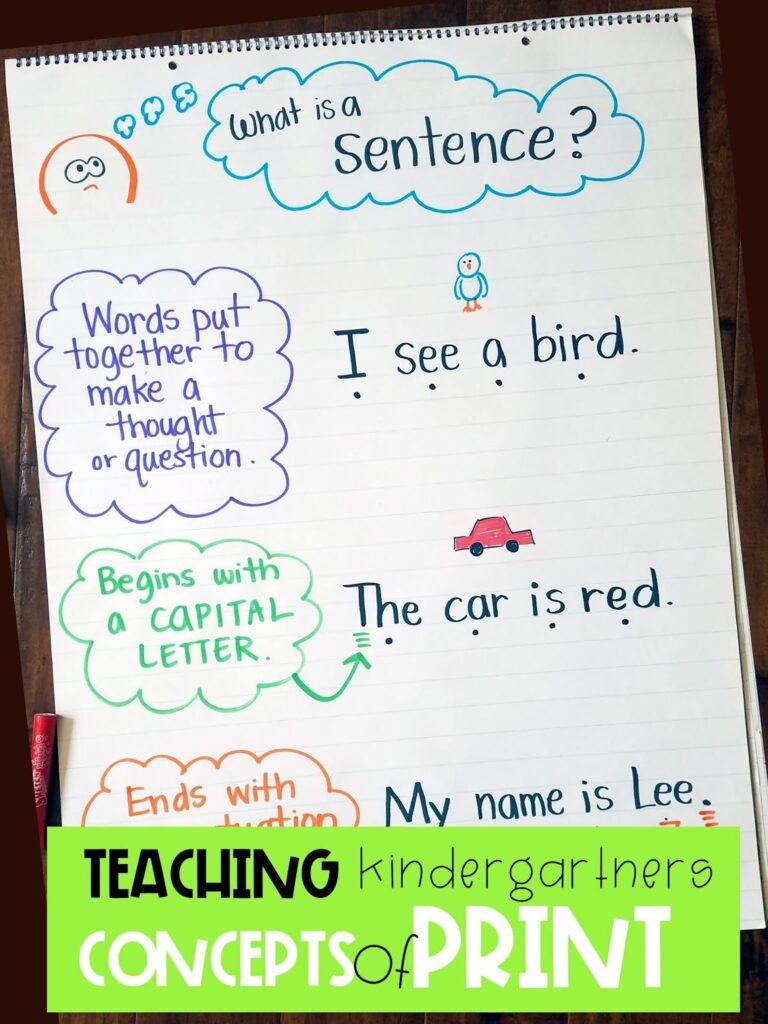 What is a
Sentence?
Words put
together to
make a
thought
or question.
I see a bird.
Begins with
a CAPITAL
LETTER.
The car is red.
Ends with
My name is Lee.
TEACHING kindergartners
CONCEPTS of PRINT